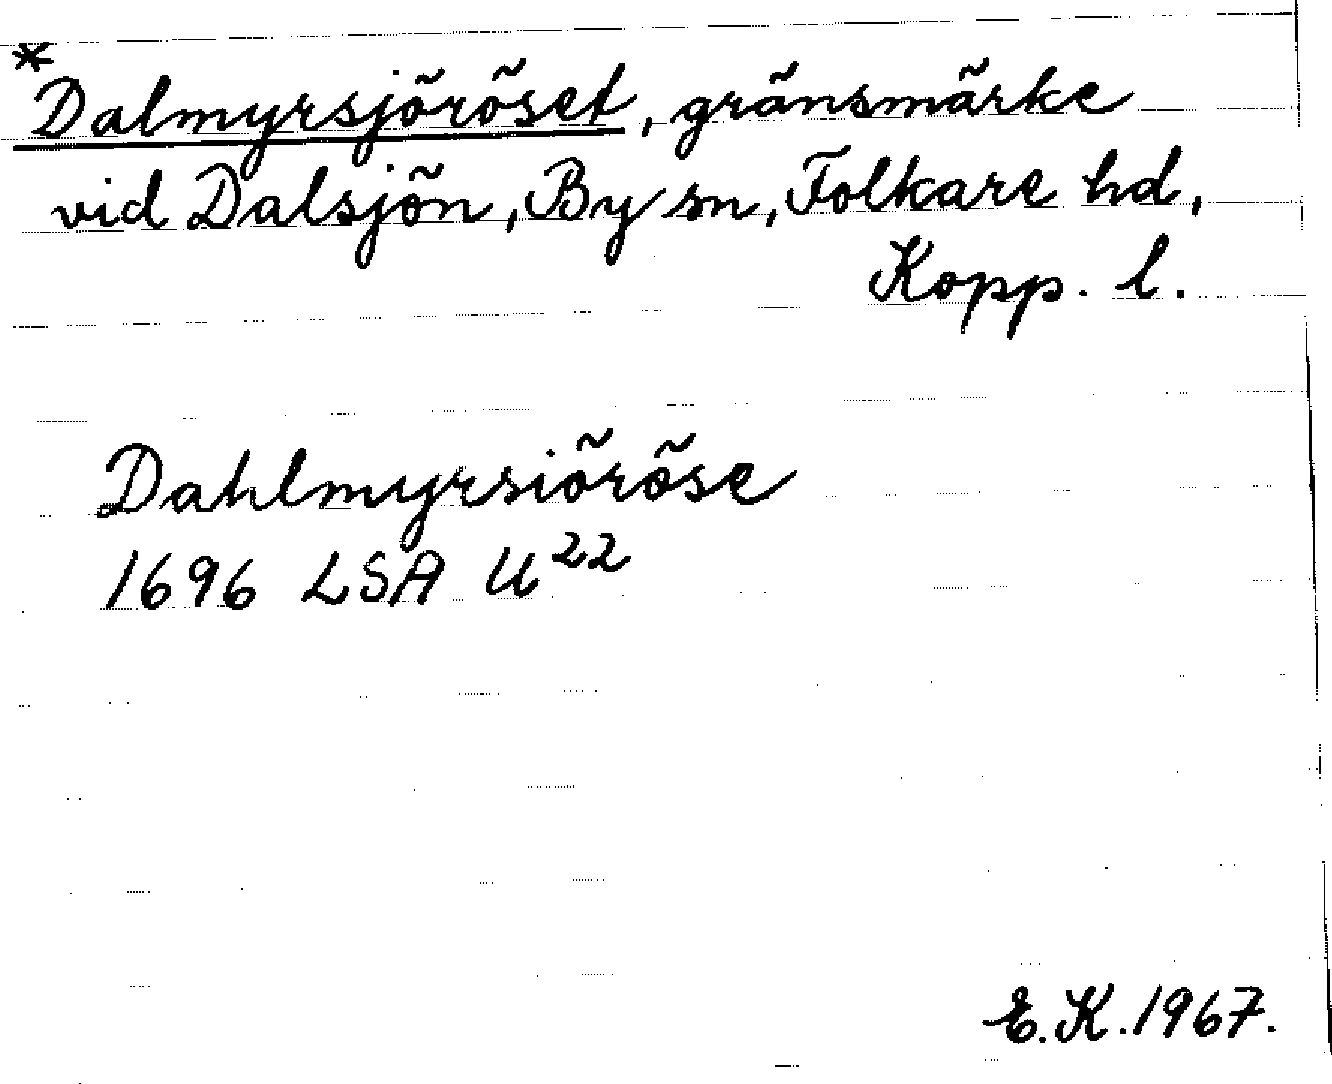 *Dalmyrsjöröset, gränsmärke
vid Dalsjön, By sn, Folkare hd,
Kopp. l.
Dahlmyrsiöröse
1696 LSA U²²
E.K. 1967.